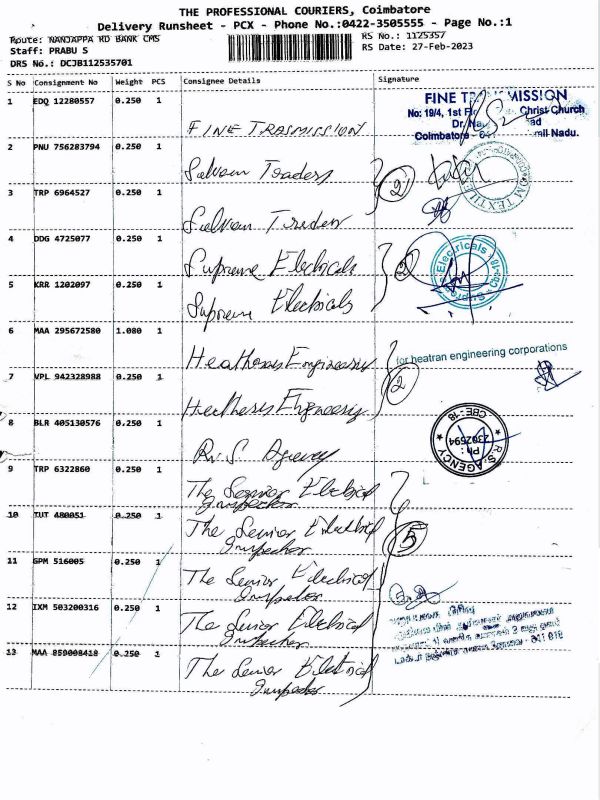 THE PROFESSIONAL COURIERS, Coimbatore
Delivery Runsheet - PCX - Phone No.:0422-3505555 - Page No.:1
Route: NANJAPPA RD BANK CMS
RS No.: 1125357
Staff: PRABU S
RS Date: 27-Feb-2023
DRS No.: DCJB112535701
S No Consignment No Weight PCS Consignee Details Signature
1 EDQ 12280557 0.250 1 FINE TRASMISSION
FINE MISSION
No: 19/4, 1st Christ Church
Dr. Na
Coimbatore - mil Nadu.
2 PNU 756283794 0.250 1 Selvam Traders
2
3 TRP 6964527 0.250 1 Selvam Traders
4 DDG 4725077 0.250 1 Supreme Electricals
2
5 KRR 1202097 0.250 1 Supreme Electricals
6 MAA 295672580 1.080 1
for heatran engineering corporations
2
7 VPL 942328988 0.250 1
8 BLR 405130576 0.250 1 R.S. Agency
R.S. AGENCY
CBE-18
Ph :
2302594
9 TRP 6322860 0.250 1 The Senior Electrical
Inspector
10 TUT 480051 0.250 1 The Senior Electrical
Inspector
5
11 GPM 516005 0.250 1 The Senior Electrical
Inspector
12 IXM 503200316 0.250 1 The Senior Electrical
Inspector
13 MAA 859008418 0.250 1 The Senior Electrical
Inspector